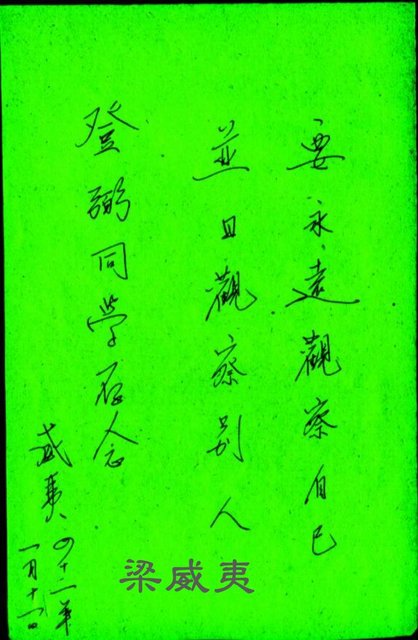 要永遠觀察自己
並且觀察別人
登弼同學存念
威夷 四十二年
一月十日
梁威夷